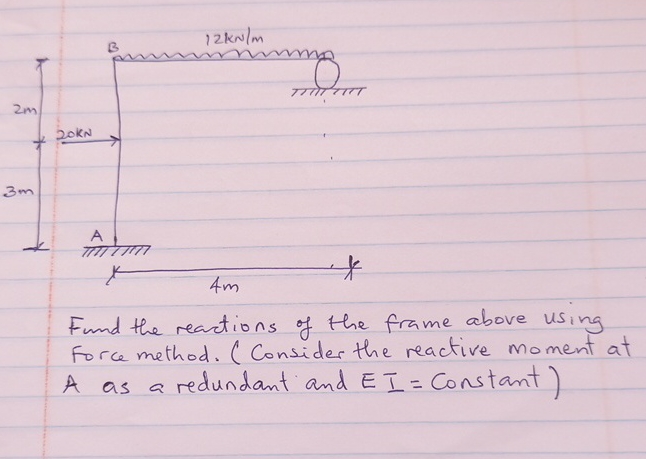 12kN/m
B
2m
20KN
3m
A
4m
Fund the reactions of the frame above using
Force method. (Consider the reactive moment at
A as a redundant and EI = Constant)